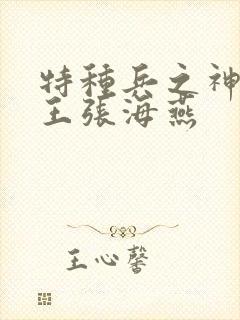 特種兵之神
王張海燕
王心馨